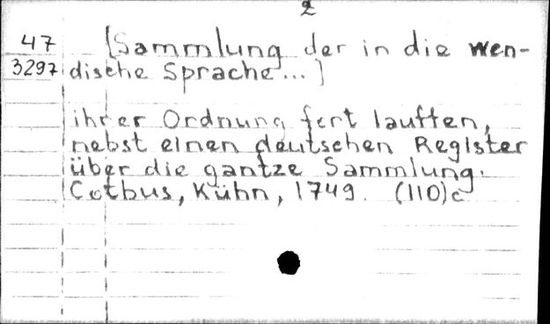 2
47 [Sammlung der in die wen-
3297 dische Sprache...]
ihrer Ordnung fert lauften,
nebst einen deutschen Register
über die gantze Sammlung.
Cotbus, Kühn, 1749. (110)c